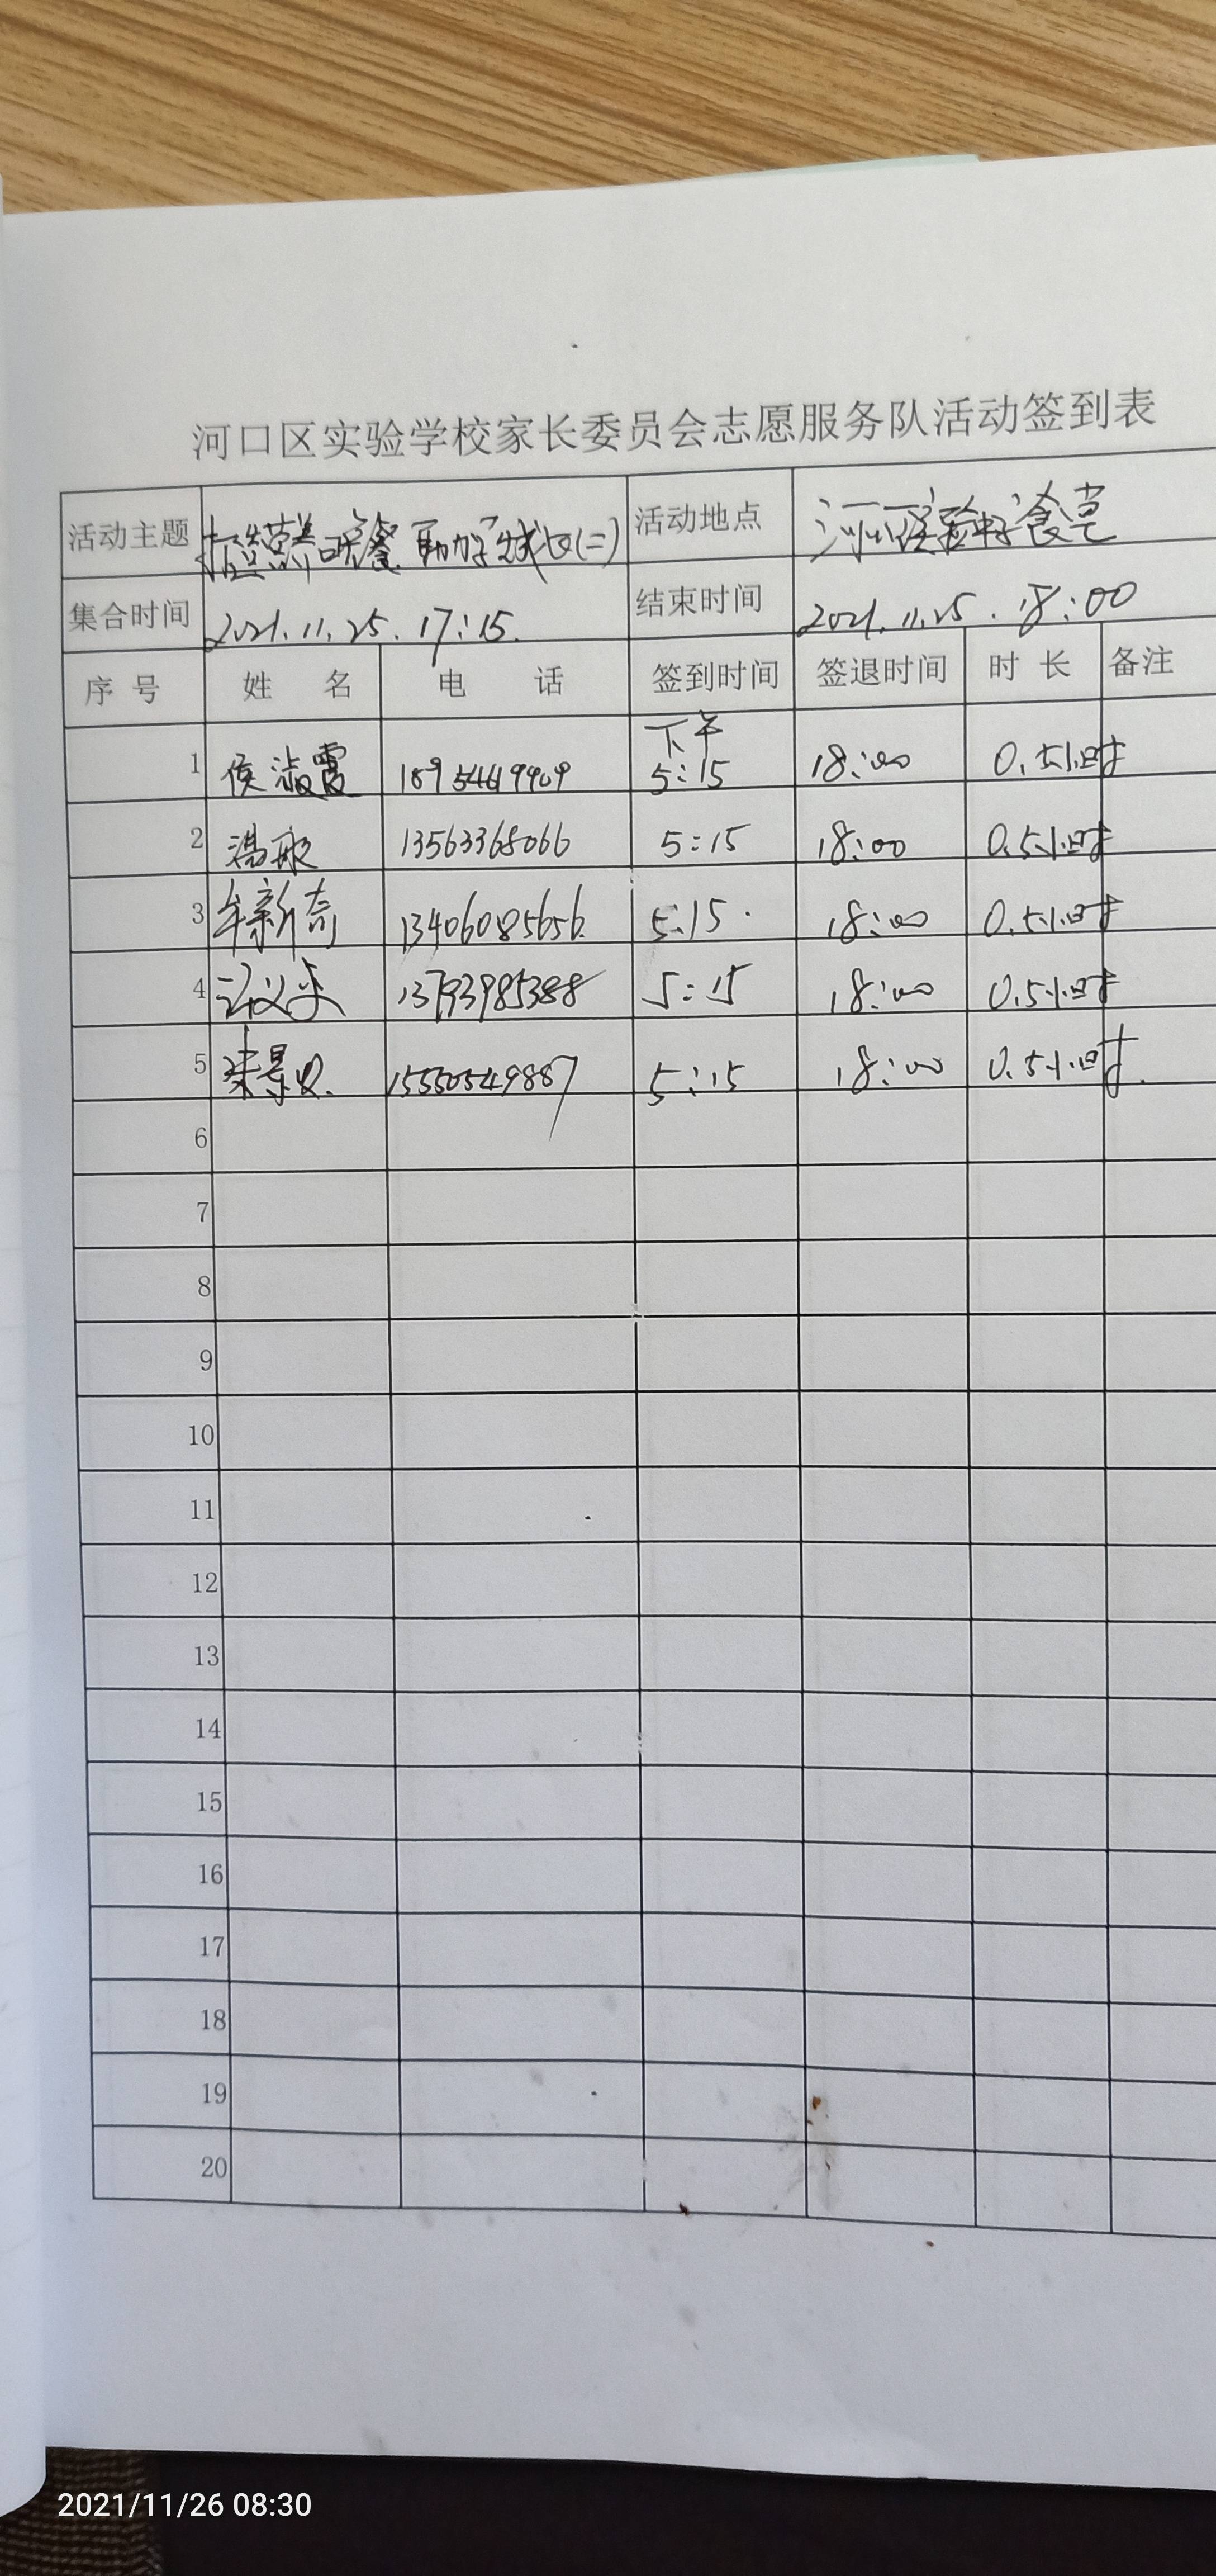 河口区实验学校家长委员会志愿服务队活动签到表
活动主题 营养晚餐 助力 (二) 活动地点 河口实验 食堂
集合时间 2021.11.25.17:15. 结束时间 2021.11.25.18:00
序号 姓名 电话 签到时间 签退时间 时长 备注
下午
1 侯淑霞 18954419909 5:15 18:00 0.5小时
2 13563368066 5:15 18:00 0.5小时
3 牟新奇 13406085656. 5:15. 18:00 0.5小时
4 13793985388 5:15 18:00 0.5小时
5 15550549887 5:15 18:00 0.5小时.
6
7
8
9
10
11
12
13
14
15
16
17
18
19
20
2021/11/26 08:30